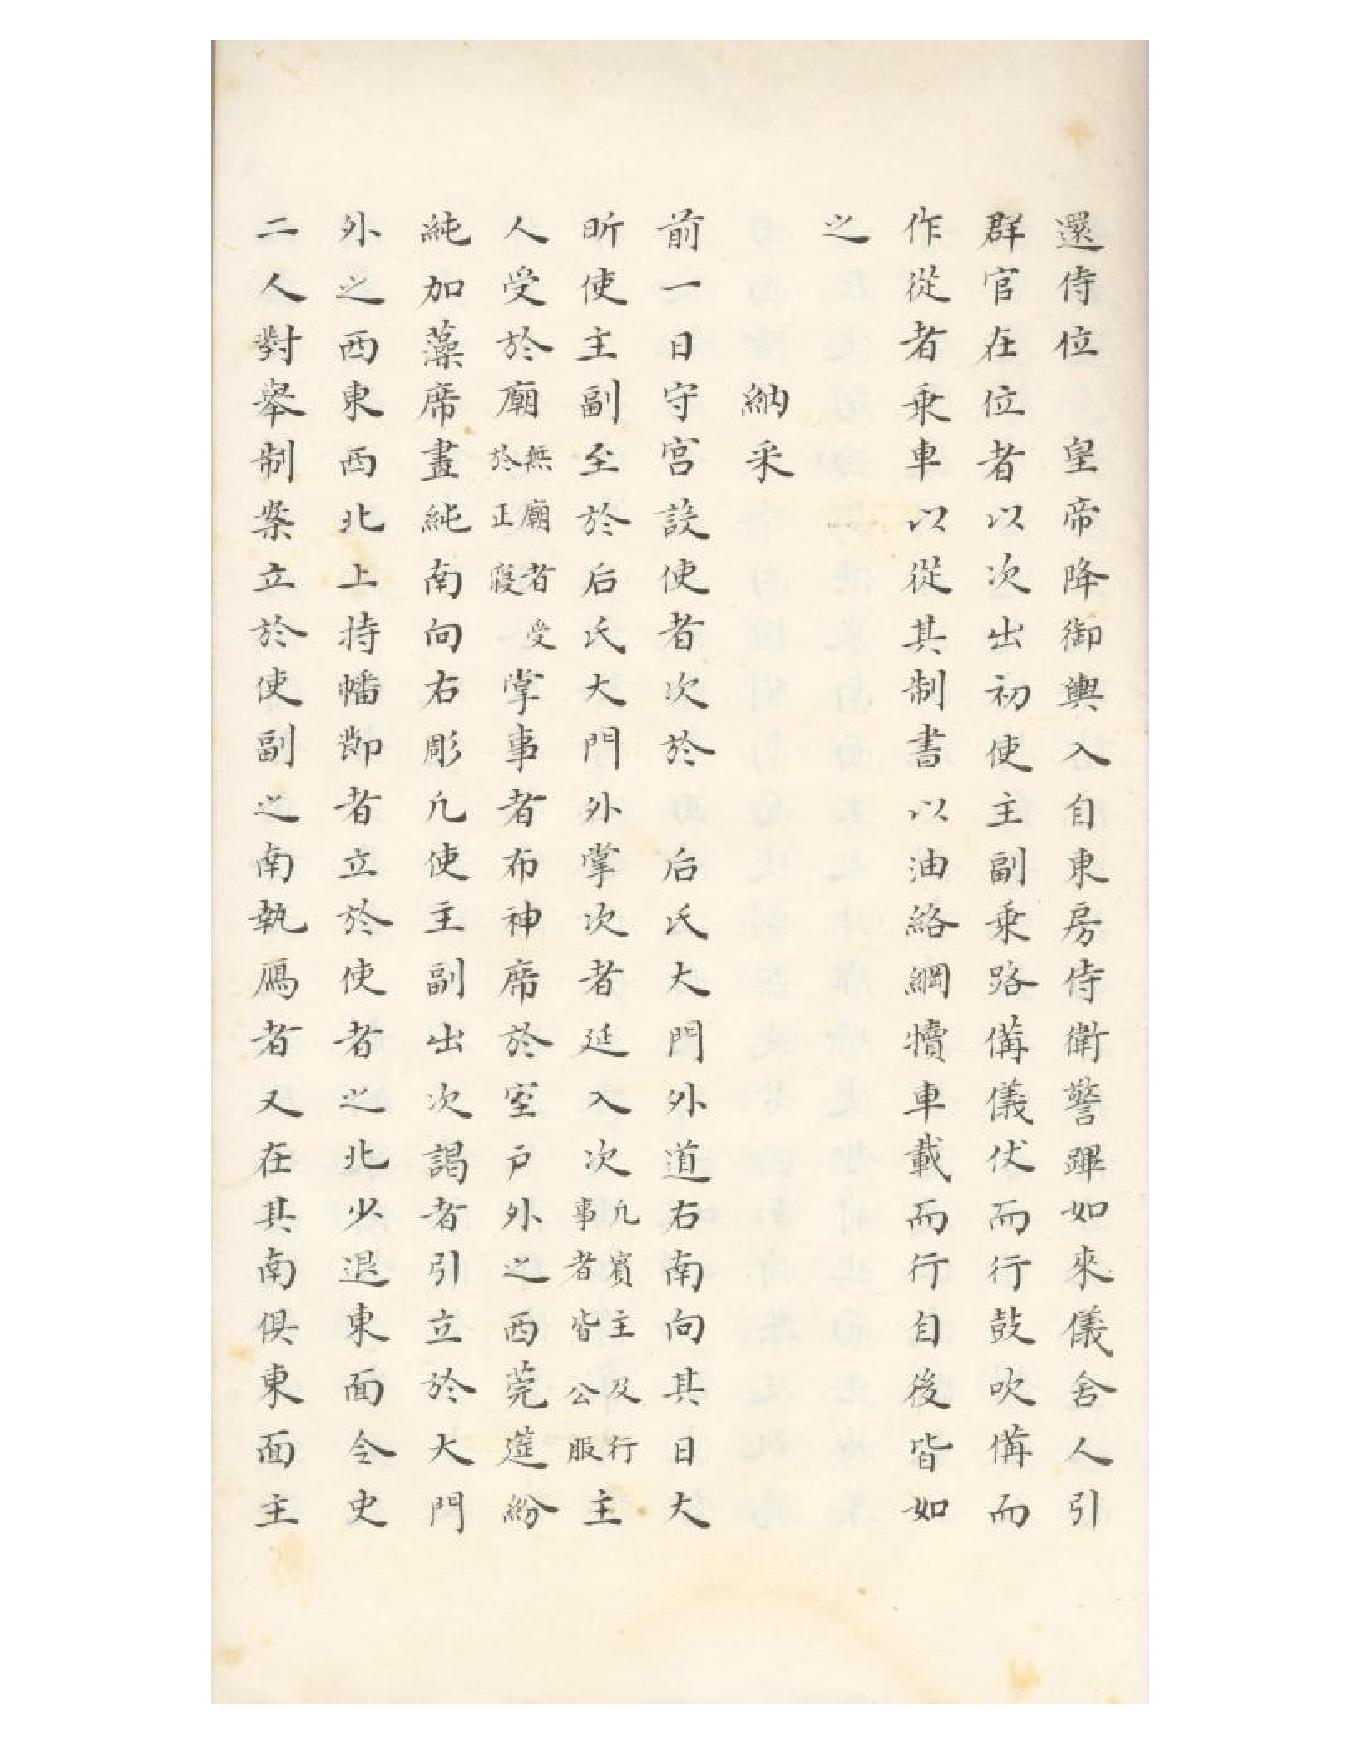 還侍位　皇帝降御輿入自東房侍衛警蹕如來儀舍人引
群官在位者以次出初使主副乘路備儀仗而行鼓吹備而
作從者乘車以從其制書以油絡網犢車載而行自後皆如
之
納采
前一日守宮設使者次於　后氏大門外道右南向其日大
昕使主副至於后氏大門外掌次者延入次凡賓主及行事者皆公服主
人受於廟無廟者受於正寢掌事者布神席於室戶外之西莞筵紛
純加藻席畫純南向右彫几使主副出次謁者引立於大門
外之西東西北上持幡節者立於使者之北少退東面令史
二人對舉制案立於使副之南執鴈者又在其南俱東面主